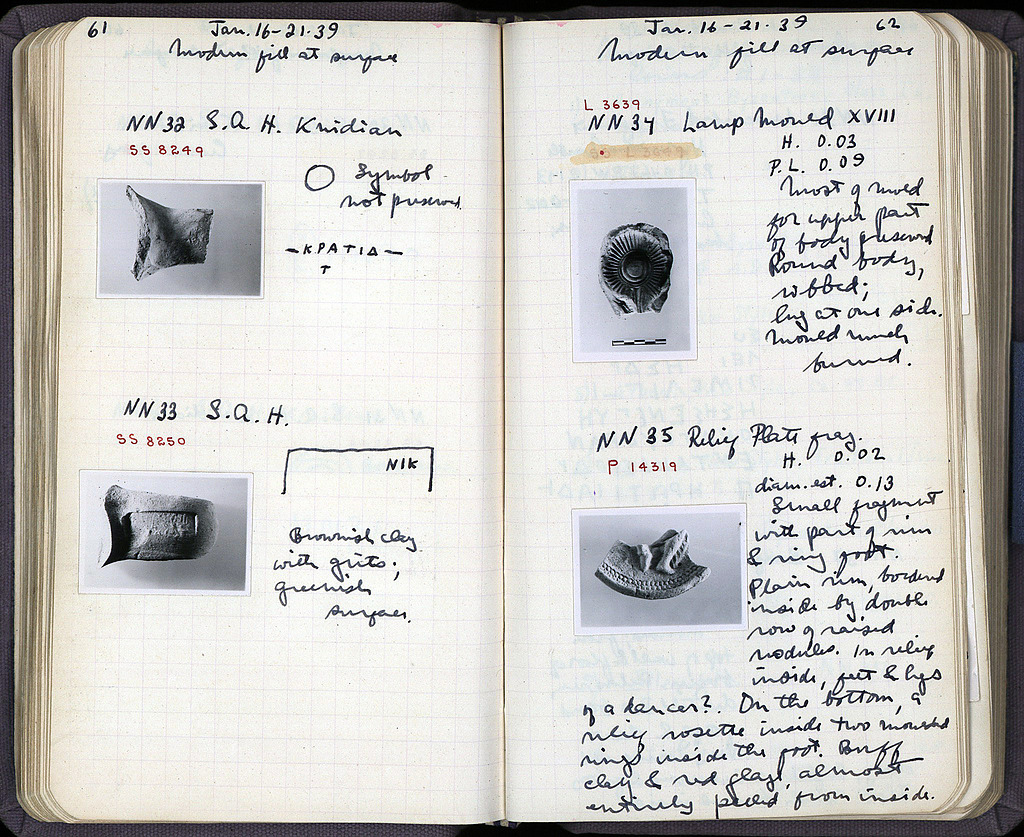 61
Jan. 16-21-39
Modern fill at surface
NN32 S.A.H. Knidian
SS 8249
Symbol
not preserved
-ΚΡΑΤΙΔ-
Τ
NN33 S.A.H.
SS 8250
ΝΙΚ
Brownish clay
with grits;
greenish
surface.
Jan. 16-21.39
62
Modern fill at surface
L 3639
NN34 Lamp Mould XVIII
H. 0.03
P.L. 0.09
Most of mould
for upper part
of body preserved
Round body,
ribbed;
lug at one side.
Mould much
burned.
NN 35 Relief Plate frag.
P 14319
H. 0.02
diam. est. 0.13
Small fragment
with part of rim
& ring foot.
Plain rim, bordered
inside by double
row of raised
nodules. In relief
inside, feet & legs
of a dancer?. On the bottom, a
relief rosette inside two moulded
rings inside the foot. Buff
clay & red glaze, almost
entirely peeled from inside.